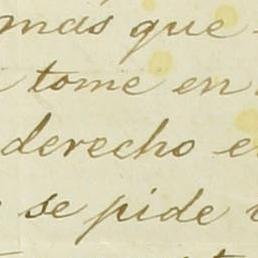 más que
tome en
derecho e
se pide